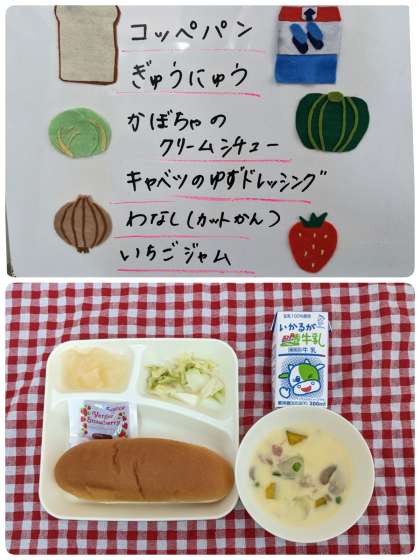 コッペパン
ぎゅうにゅう
かぼちゃの
クリームシチュー
キャベツのゆずドレッシング
わなし(カットかん)
いちごジャム
いかるが
牛乳
Verger
Strawberry